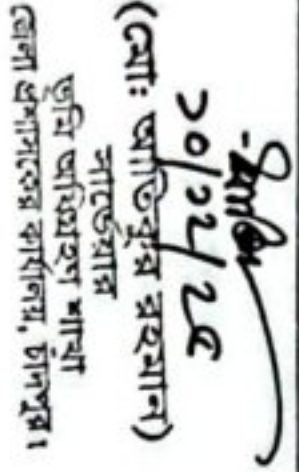 ১০/১২/২৫
(মোঃ আতিকুর রহমান)
সার্ভেয়ার
ভূমি অধিগ্রহণ শাখা
জেলা প্রশাসকের কার্যালয়, চাঁদপুর।